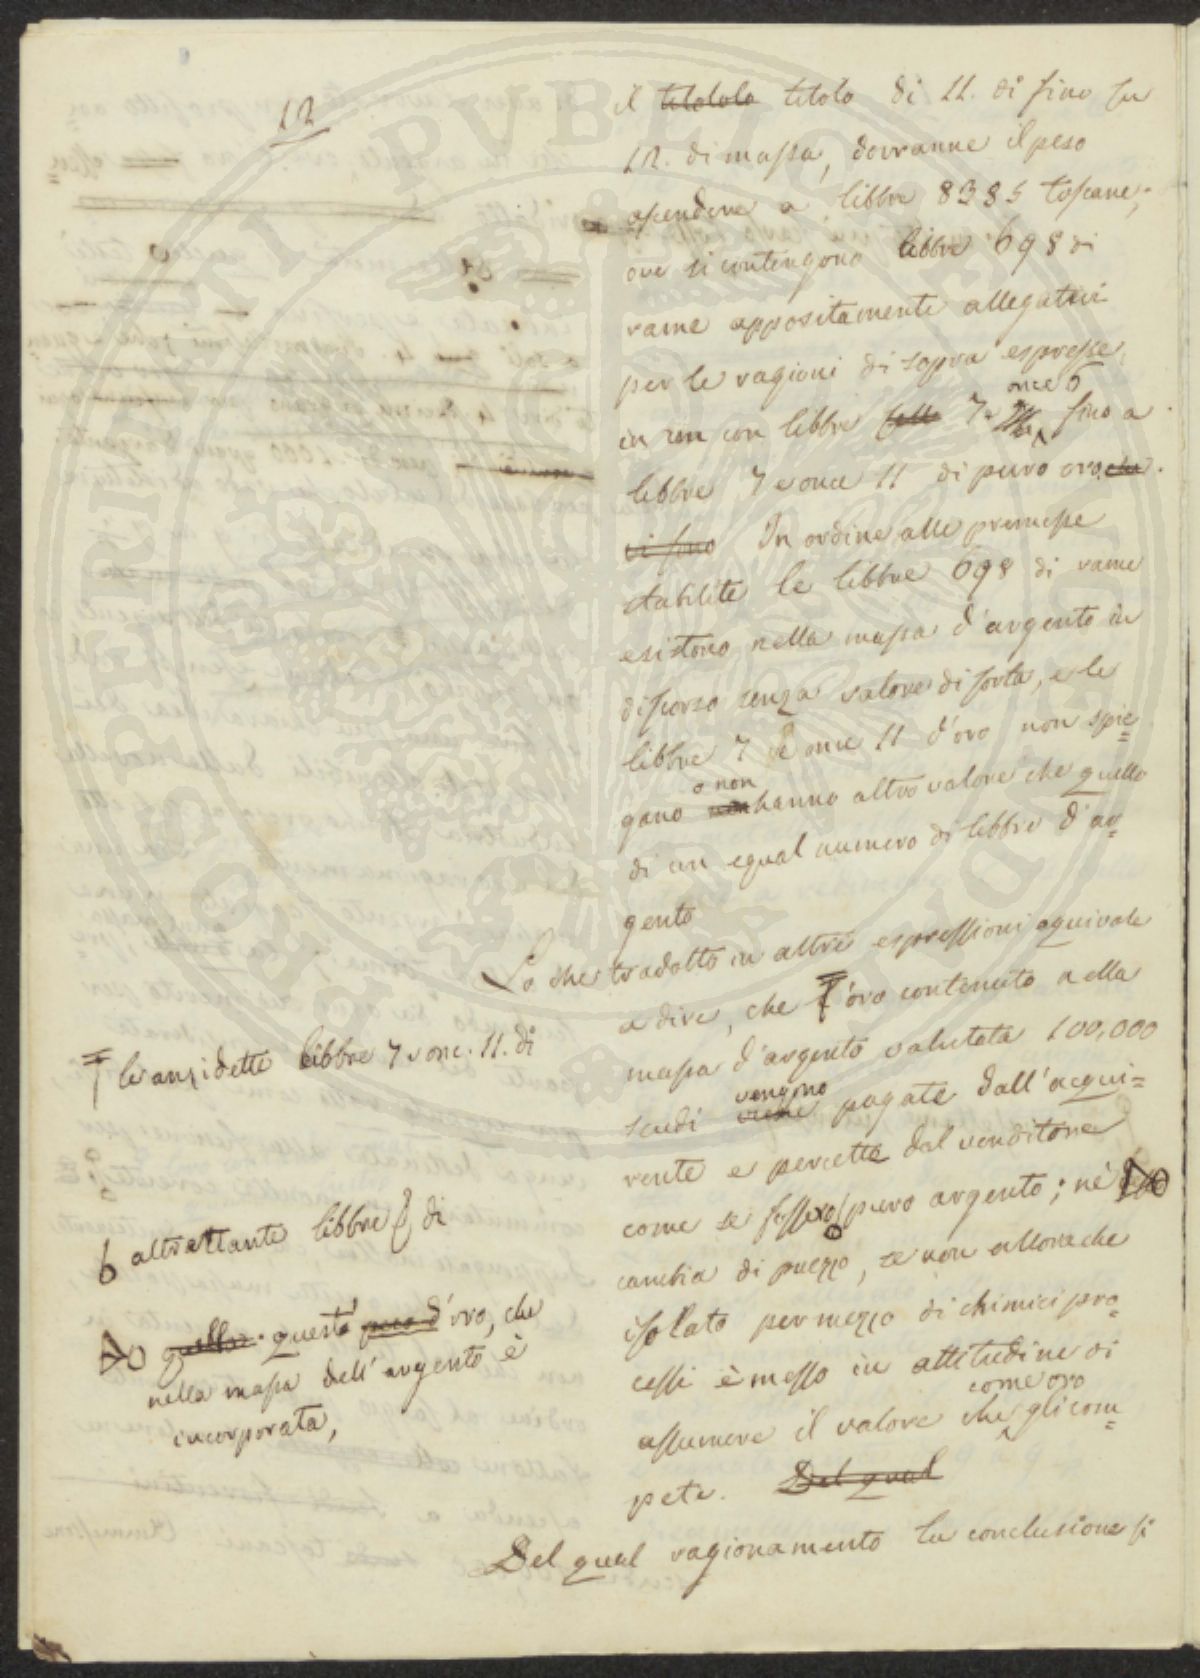 12
il titololo titolo di 11. di fino su
12. di massa, dovranne il peso
ascendere a libbre 8385 toscane;
ove si contengono libbre 698 di
rame appositamente allegatevi
per le ragioni di sopra espresse,
in un con libbre sette 7 e once 6 fino a
libbre 7 e once 11 di puro oro. che
vi sono In ordine alle premesse
stabilite le libbre 698 di rame
esistono nella massa d'argento in
discorso senza valore di sorta, e le
libbre 7 e once 11 d'oro non spie=
gano o non non hanno altro valore che quello
di un egual numero di libbre d'ar=
gento
Lo che tradotto in altre espressioni equivale
a dire, che l'oro contenuto nella
massa d'argento valutata 100,000
scudi viene vengono pagate dall'acqui=
rente e percette dal venditore
come se fossero puro argento; nè
cambia di prezzo, se non allora che
isolato per mezzo di chimici pro=
cessi è messo in attitudine di
assumere il valore che come oro gli com=
pete. Del qual
Del qual ragionamento la conclusione si
le anzidette libbre 7 e onc. 11. di
altrettante libbre di
questo puro d'oro, che
nella massa dell'argento è
incorporata,
PERITI PUBLICO